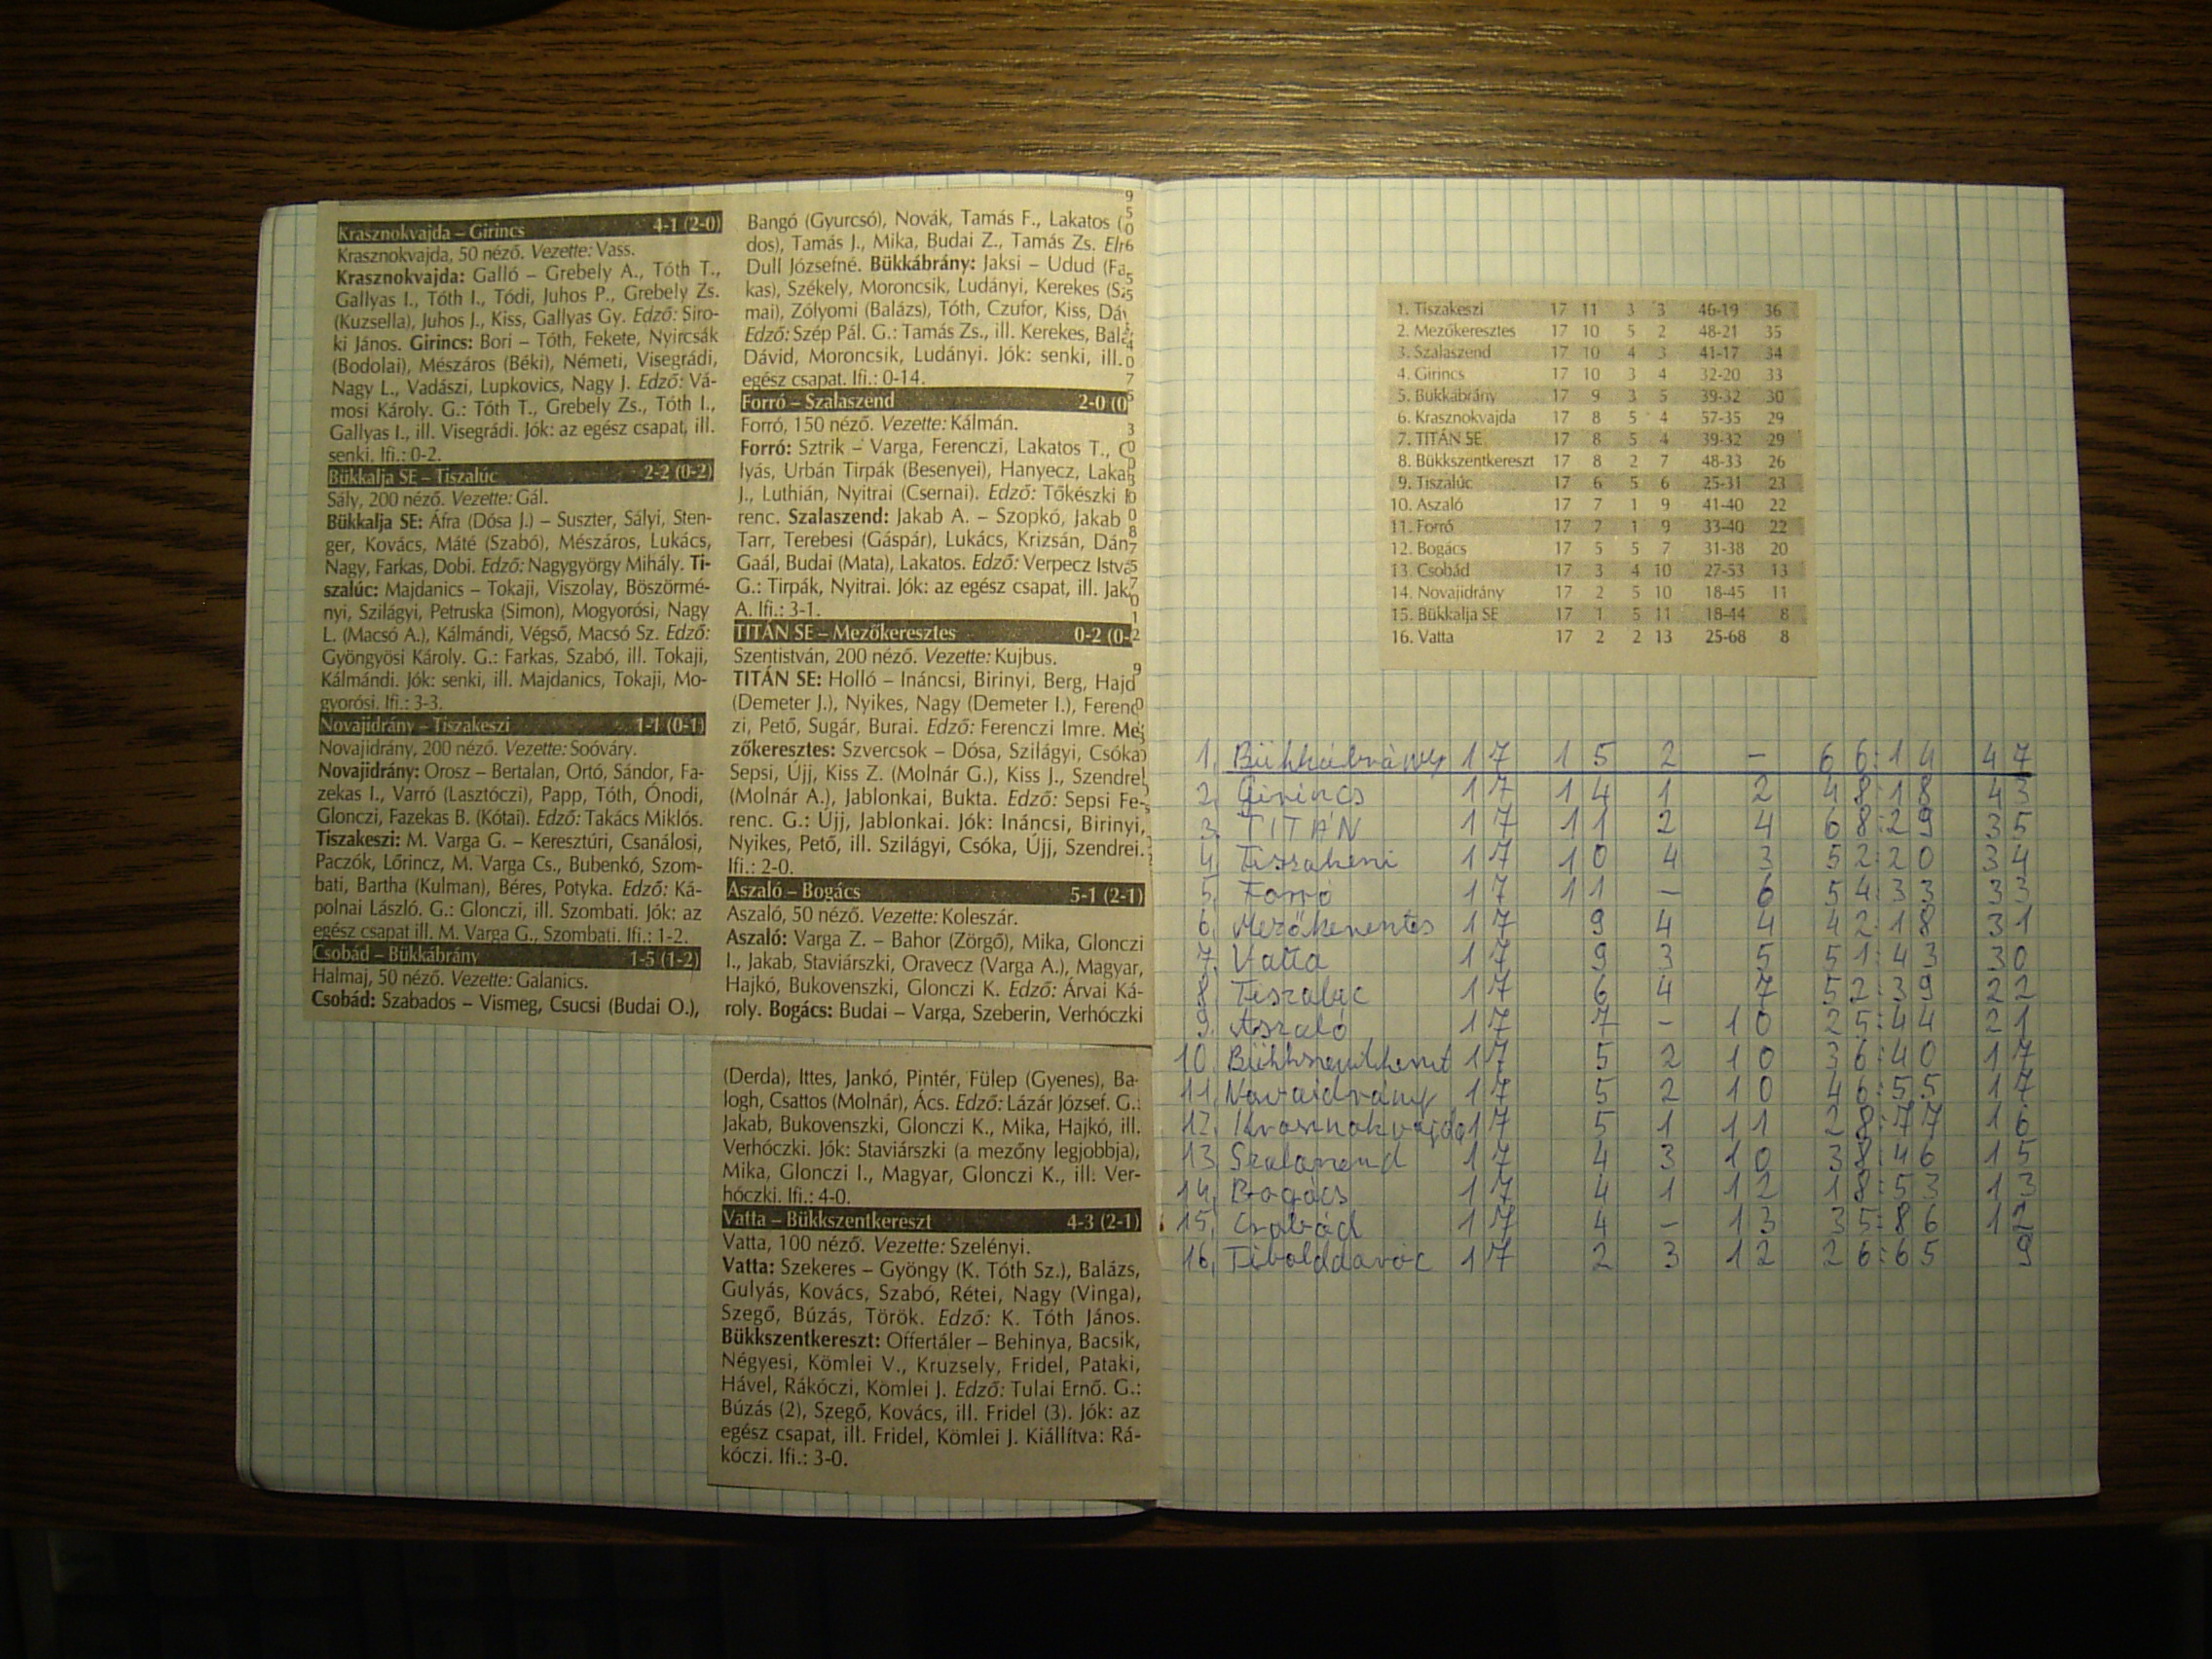 Krasznokvajda – Girincs 4-1 (2-0)
Krasznokvajda, 50 néző. Vezette: Vass.
Krasznokvajda: Galló – Grebely A., Tóth T.,
Gallyas I., Tóth I., Tódi, Juhos P., Grebely Zs.
(Kuzsella), Juhos J., Kiss, Gallyas Gy. Edző: Siro-
ki János. Girincs: Bori – Tóth, Fekete, Nyircsák
(Bodolai), Mészáros (Béki), Németi, Visegrádi,
Nagy L., Vadászi, Lupkovics, Nagy J. Edző: Vá-
mosi Károly. G.: Tóth T., Grebely Zs., Tóth I.,
Gallyas I., ill. Visegrádi. Jók: az egész csapat, ill.
senki. Ifi.: 0-2.
Bükkalja SE – Tiszalúc 2-2 (0-2)
Sály, 200 néző. Vezette: Gál.
Bükkalja SE: Áfra (Dósa J.) – Suszter, Sályi, Sten-
ger, Kovács, Máté (Szabó), Mészáros, Lukács,
Nagy, Farkas, Dobi. Edző: Nagygyörgy Mihály. Ti-
szalúc: Majdanics – Tokaji, Viszolay, Böszörmé-
nyi, Szilágyi, Petruska (Simon), Mogyorósi, Nagy
L. (Macsó A.), Kálmándi, Végső, Macsó Sz. Edző:
Gyöngyösi Károly. G.: Farkas, Szabó, ill. Tokaji,
Kálmándi. Jók: senki, ill. Majdanics, Tokaji, Mo-
gyorósi. Ifi.: 3-3.
Novajidrány – Tiszakeszi 1-1 (0-1)
Novajidrány, 200 néző. Vezette: Soóváry.
Novajidrány: Orosz – Bertalan, Ortó, Sándor, Fa-
zekas I., Varró (Lasztóczi), Papp, Tóth, Ónodi,
Glonczi, Fazekas B. (Kótai). Edző: Takács Miklós.
Tiszakeszi: M. Varga G. – Keresztúri, Csanálosi,
Paczók, Lőrincz, M. Varga Cs., Bubenkó, Szom-
bati, Bartha (Kulman), Béres, Potyka. Edző: Ká-
polnai László. G.: Glonczi, ill. Szombati. Jók: az
egész csapat ill. M. Varga G., Szombati. Ifi.: 1-2.
Csobád – Bükkábrány 1-5 (1-2)
Halmaj, 50 néző. Vezette: Galanics.
Csobád: Szabados – Vismeg, Csucsi (Budai O.),
Bangó (Gyurcsó), Novák, Tamás F., Lakatos
dos), Tamás J., Mika, Budai Z., Tamás Zs.
Dull Józsefné. Bükkábrány: Jaksi – Udud
kas), Székely, Moroncsik, Ludányi, Kerekes
mai), Zólyomi (Balázs), Tóth, Czufor, Kiss,
Edző: Szép Pál. G.: Tamás Zs., ill. Kerekes,
Dávid, Moroncsik, Ludányi. Jók: senki, ill.
egész csapat. Ifi.: 0-14.
Forró – Szalaszend 2-0 (0
Forró, 150 néző. Vezette: Kálmán.
Forró: Sztrik – Varga, Ferenczi, Lakatos T.,
lyás, Urbán Tirpák (Besenyei), Hanyecz,
J., Luthián, Nyitrai (Csernai). Edző: Tőkészki
renc. Szalaszend: Jakab A. – Szopkó, Jakab
Tarr, Terebesi (Gáspár), Lukács, Krizsán,
Gaál, Budai (Mata), Lakatos. Edző: Verpecz
G.: Tirpák, Nyitrai. Jók: az egész csapat, ill.
A. Ifi.: 3-1.
TITÁN SE – Mezőkeresztes 0-2 (0-2
Szentistván, 200 néző. Vezette: Kujbus.
TITÁN SE: Holló – Ináncsi, Birinyi, Berg,
(Demeter J.), Nyikes, Nagy (Demeter I.),
zi, Pető, Sugár, Burai. Edző: Ferenczi Imre.
zőkeresztes: Szvercsok – Dósa, Szilágyi, Csóka
Sepsi, Újj, Kiss Z. (Molnár G.), Kiss J., Szendrei
(Molnár A.), Jablonkai, Bukta. Edző: Sepsi Fe-
renc. G.: Újj, Jablonkai. Jók: Ináncsi, Birinyi,
Nyikes, Pető, ill. Szilágyi, Csóka, Újj, Szendrei.
Ifi.: 2-0.
Aszaló – Bogács 5-1 (2-1)
Aszaló, 50 néző. Vezette: Koleszár.
Aszaló: Varga Z. – Bahor (Zörgő), Mika, Glonczi
I., Jakab, Staviárszki, Oravecz (Varga A.), Magyar,
Hajkó, Bukovenszki, Glonczi K. Edző: Árvai Ká-
roly. Bogács: Budai – Varga, Szeberin, Verhóczki
(Derda), Ittes, Jankó, Pintér, Fülep (Gyenes), Ba-
logh, Csattos (Molnár), Ács. Edző: Lázár József. G.:
Jakab, Bukovenszki, Glonczi K., Mika, Hajkó, ill.
Verhóczki. Jók: Staviárszki (a mezőny legjobbja),
Mika, Glonczi I., Magyar, Glonczi K., ill: Ver-
hóczki. Ifi.: 4-0.
Vatta – Bükkszentkereszt 4-3 (2-1)
Vatta, 100 néző. Vezette: Szelényi.
Vatta: Szekeres – Gyöngy (K. Tóth Sz.), Balázs,
Gulyás, Kovács, Szabó, Rétei, Nagy (Vinga),
Szegő, Búzás, Török. Edző: K. Tóth János.
Bükkszentkereszt: Offertáler – Behinya, Bacsik,
Négyesi, Kömlei V., Kruzsely, Fridel, Pataki,
Hável, Rákóczi, Kömlei J. Edző: Tulai Ernő. G.:
Búzás (2), Szegő, Kovács, ill. Fridel (3). Jók: az
egész csapat, ill. Fridel, Kömlei J. Kiállítva: Rá-
kóczi. Ifi.: 3-0.
1. Tiszakeszi 17 11 3 3 46-19 36
2. Mezőkeresztes 17 10 5 2 48-21 35
3. Szalaszend 17 10 4 3 41-17 34
4. Girincs 17 10 3 4 32-20 33
5. Bükkábrány 17 9 3 5 39-32 30
6. Krasznokvajda 17 8 5 4 57-35 29
7. TITÁN SE 17 8 5 4 39-32 29
8. Bükkszentkereszt 17 8 2 7 48-33 26
9. Tiszalúc 17 6 5 6 25-31 23
10. Aszaló 17 7 1 9 41-40 22
11. Forró 17 7 1 9 33-40 22
12. Bogács 17 5 5 7 31-38 20
13. Csobád 17 3 4 10 27-53 13
14. Novajidrány 17 2 5 10 18-45 11
15. Bükkalja SE 17 1 5 11 18-44 8
16. Vatta 17 2 2 13 25-68 8
1. Bükkábrány 17 15 2 – 66:14 47
2. Girincs 17 14 1 2 48:18 43
3. TITÁN 17 11 2 4 68:29 35
4. Tiszakeszi 17 10 4 3 52:20 34
5. Forró 17 11 – 6 54:33 33
6. Mezőkeresztes 17 9 4 4 42:18 31
7. Vatta 17 9 3 5 51:43 30
8. Tiszalúc 17 6 4 7 52:39 22
9. Aszaló 17 7 – 10 25:44 21
10. Bükkszentkereszt 17 5 2 10 36:40 17
11. Novajidrány 17 5 2 10 46:55 17
12. Krasznokvajda 17 5 1 11 28:77 16
13. Szalaszend 17 4 3 10 38:46 15
14. Bogács 17 4 1 12 18:53 13
15. Csobád 17 4 – 13 35:86 12
16. Tibolddaróc 17 2 3 12 26:65 9